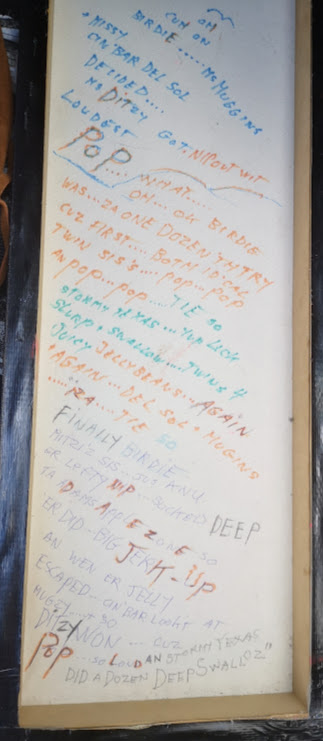 OH
CUM ON
BIRDIE..... MS MUGGINS
+ MISSY
ON BAR DEL SOL
DECIDED....
MS DITZY GOT. NIP OUT WIT
LOUDEST
POP.... WHAT....
OH... OK BIRDIE
WAS... ZA ONE DOZENTH TRY
CUZ FIRST.... BOTH IDICAL
TWIN SIS'S.... POP... POP
AN POP... POP.... TIE SO
STORMY TEXAS... YUP LICK
SLURP + SWALLOW... TWINS 4
JUICY JELLYBEANS... AGAIN
+ AGAIN... DEL SOL + MUGINS
...... ZA.... TIE SO
FINALLY BIRDIE
MITZI'Z SIS... JUS' KNU
ER LEFTY NIP... SUCKED DEEP
TA ADAMS APPLE ZONE SO
'ER DID.. BIG JERK-UP
AN WEN ER JELLY
ESCAPED... ON BAR LOOK AT
MUGSY... SO
DITZY WON ... CUZ
POP... SO LOUD AN STORMY TEXAS
DID A DOZEN DEEP SWALLOZ"